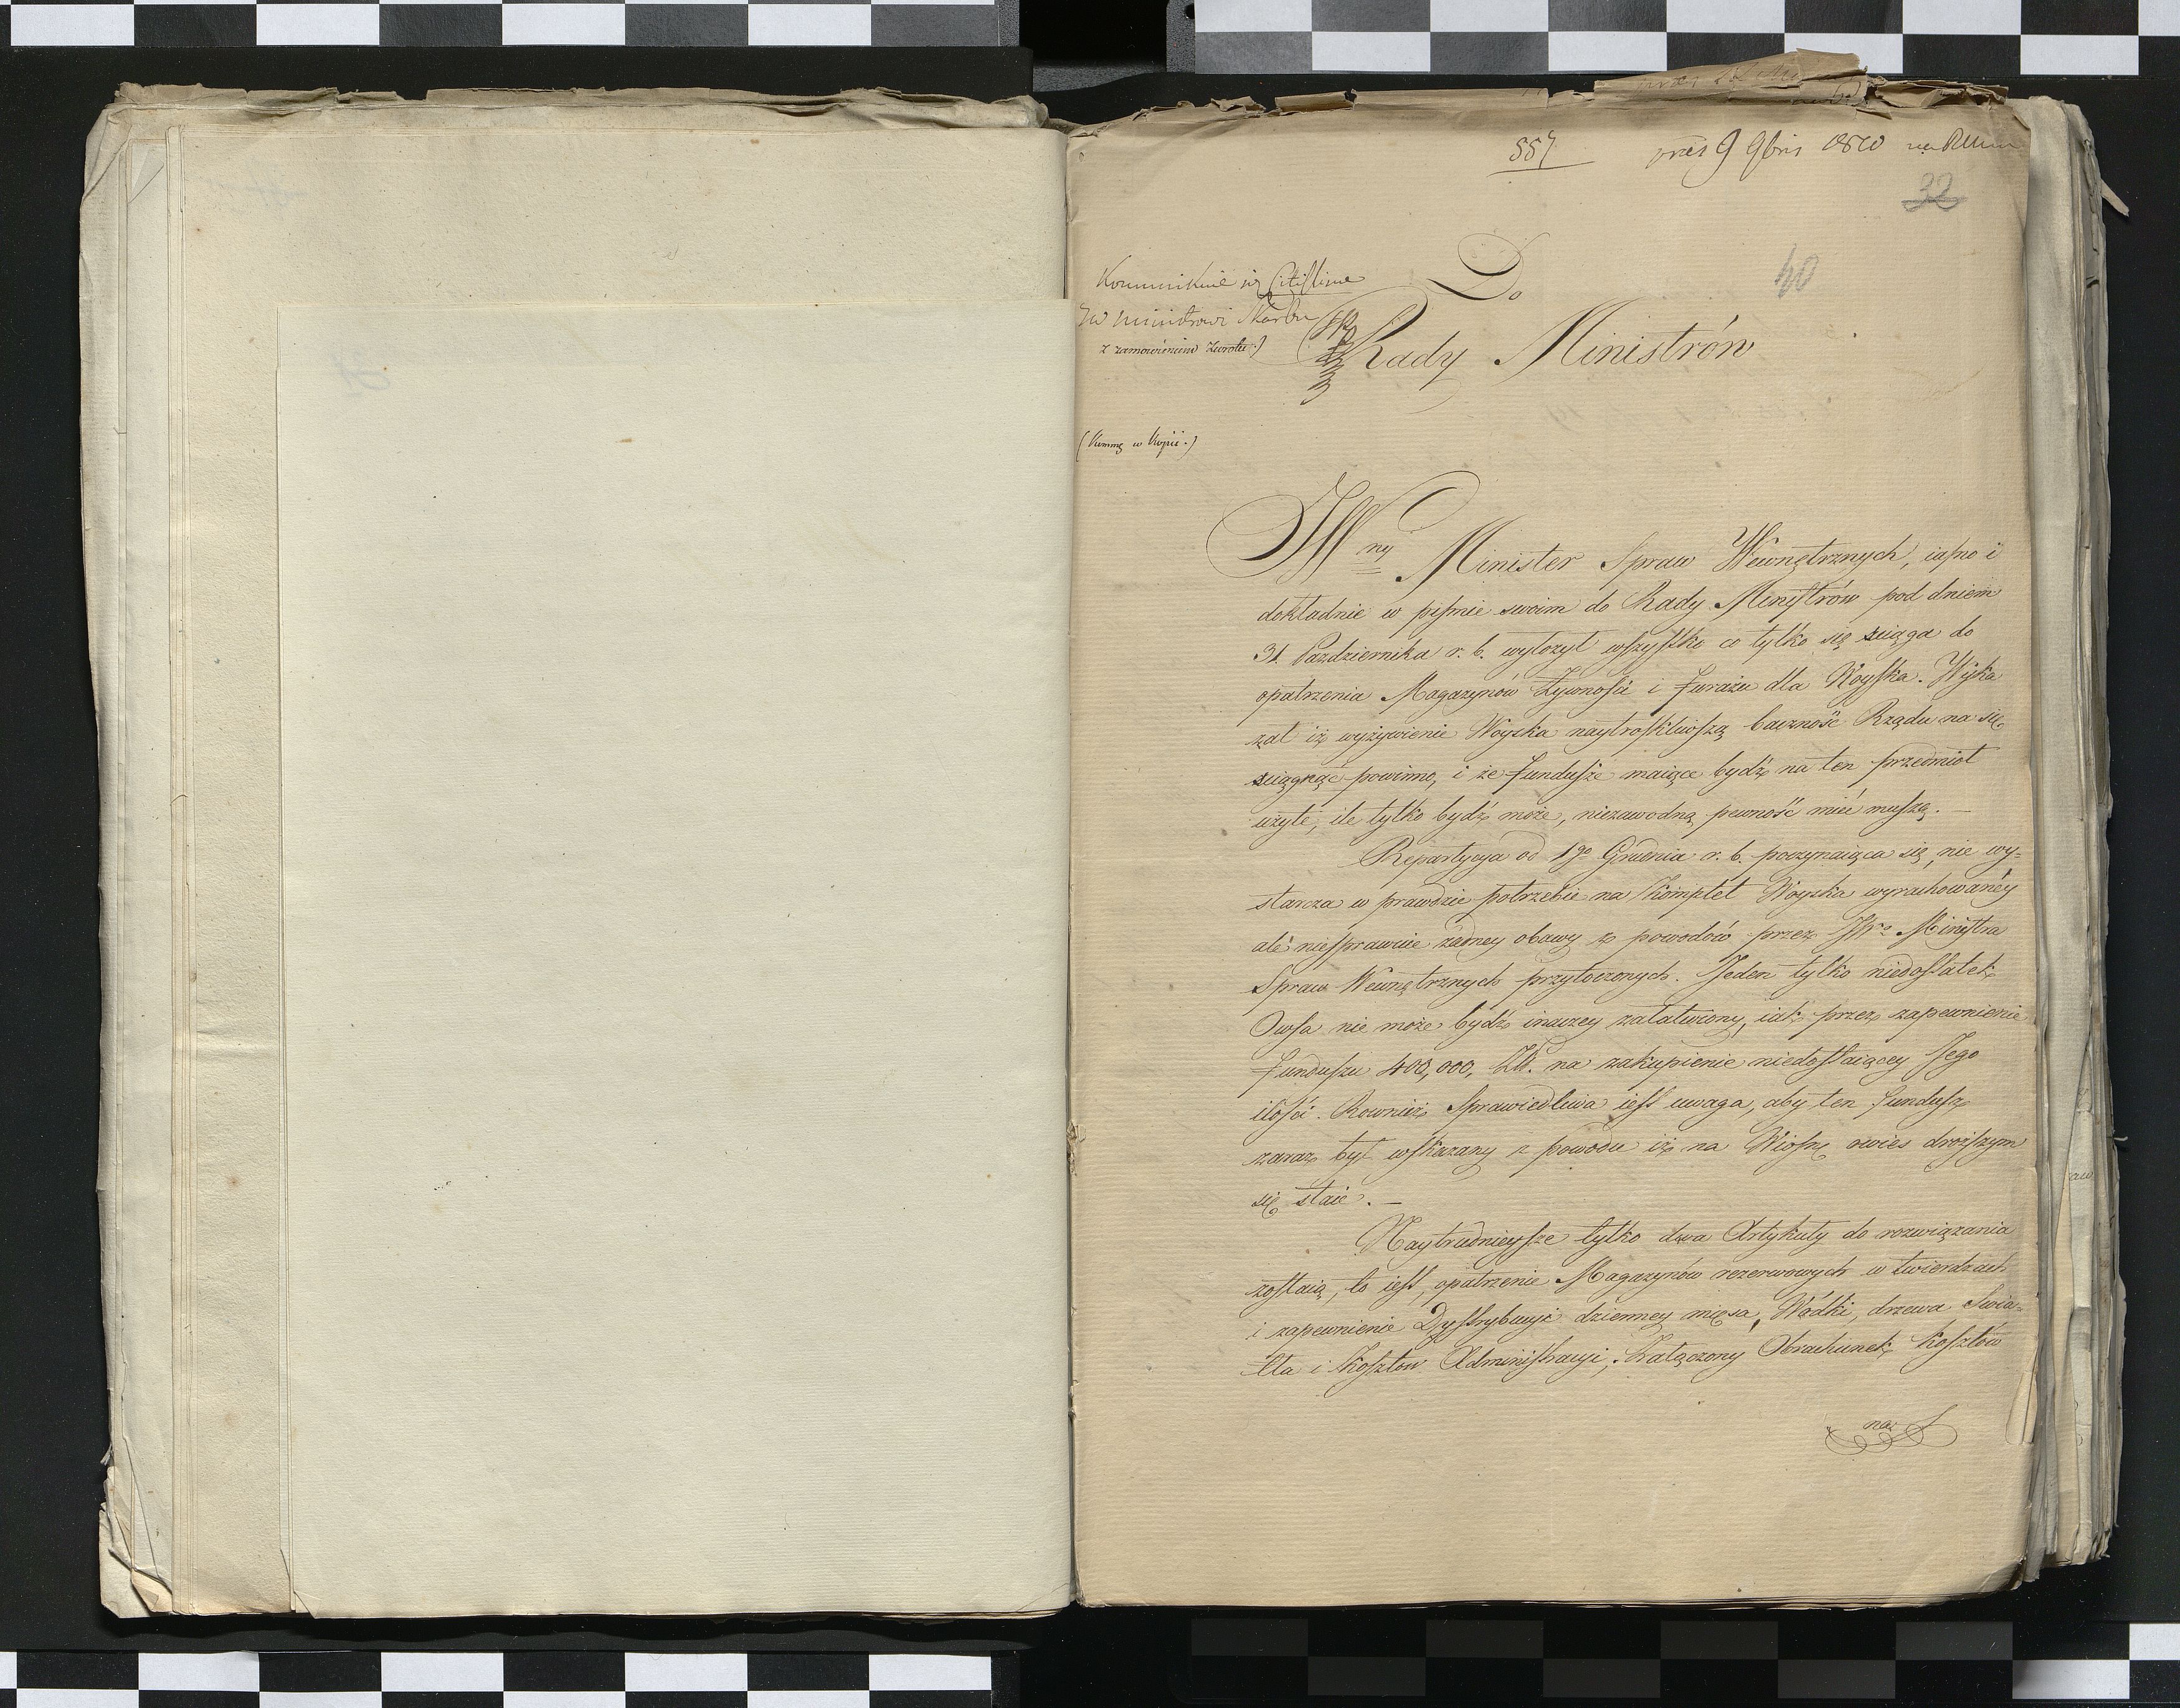 557 pres 9 9bris 1810 na RMin
32
40
Kommunikuie się Citissime
JW Ministrowi Skarbu
z zamowieniem zwrotu.)
(Kommę w Kopii.)
Do
Rady Ministrów
JWny Minister Spraw Wewnętrznych, iasno i
dokładnie w piśmie swoim do Rady Ministrów pod dniem
31. Pazdziernika r. b. wyłozył wszystko co tylko się sciąga do
opatrzenia Magazynów Zywności i furażu dla Woyska. Wyka
zał iż wyżywienie Woyska naytroskliwszą baczność Rządu na się
sciągnąć powinno, i że fundusze maiące bydź na ten przedmiot
użyte, ile tylko bydź może, niezawodną pewność mieć muszą. —
Repartycya od 1go Grudnia r. b. poczynaiąca się, nie wy=
starcza w prawdzie potrzebie na Komplet Woyska wyrachowaney
ale niesprawuie żadney obawy z powodów przez JWo Ministra
Spraw Wewnętrznych przytoczonych. Jeden tylko niedostatek
Owsa nie może bydź inaczey załatwiony, iak przez zapewnienie
funduszu 400,000, Zł. na zakupienie niedostaiącey Jego
ilości. Rownież Sprawiedliwa iest uwaga, aby ten fundusz
zaraz był wskazany z powodu iż na Wiosnę owies droższym
się staie. —
Naytrudnieysze tylko dwa Artykuły do rozwiązania
zostaią, to iest, opatrzenie Magazynów rezerwowych w twierdzach
i zapewnienie Dystrybucyi dzienney mięsa, Wódki, drzewa Swia=
tła i Kosztow Administracyi; Załączony Obrachunek Kosztów
na